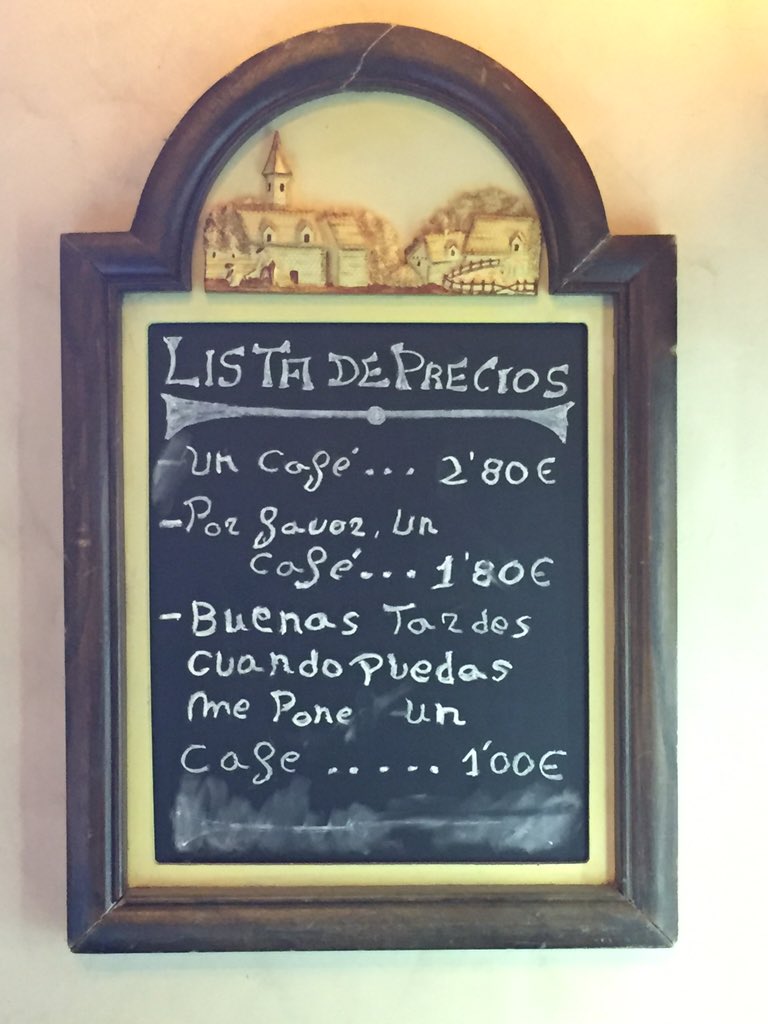 LISTA DE PRECIOS
- Un café... 2'80€
- Por favor, un
café... 1'80€
- Buenas Tardes
cuando puedas
me pone un
cafe ..... 1'00€